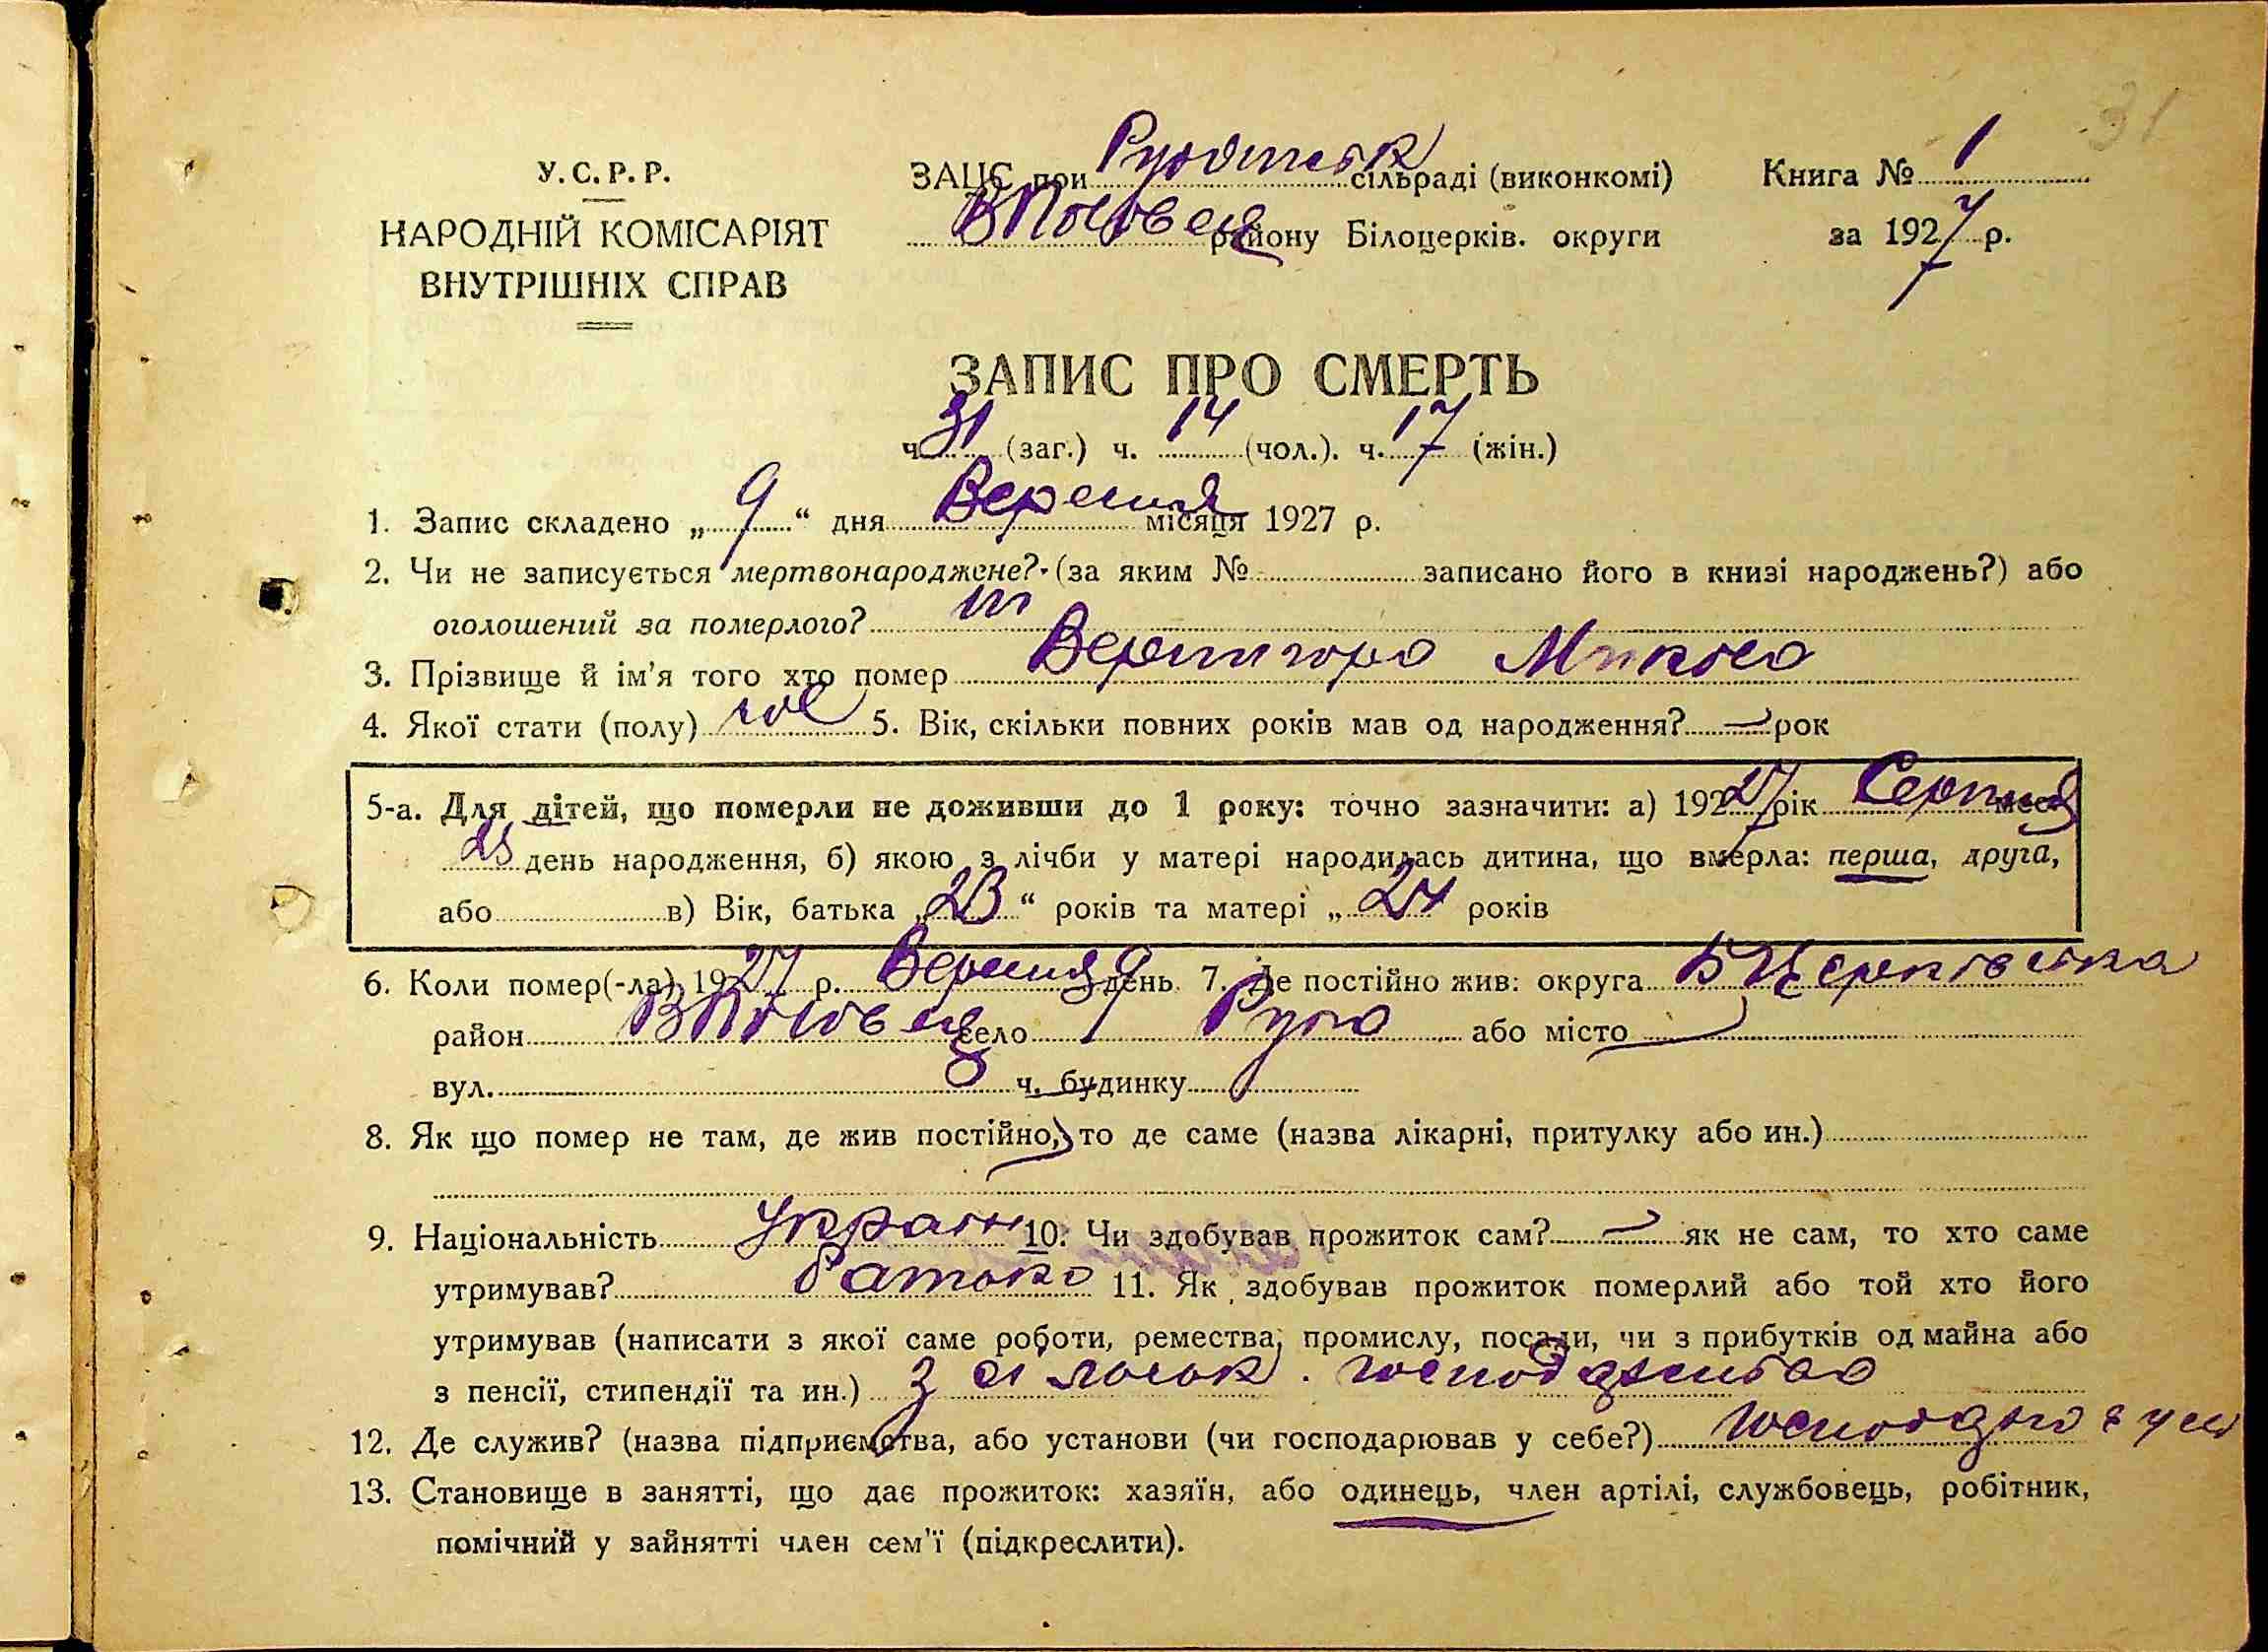 31
У.С.Р.Р.
НАРОДНІЙ КОМІСАРІЯТ
ВНУТРІШНІХ СПРАВ
ЗАЦС при сільраді (виконкомі)
району Білоцерків. округи
Книга № 1
за 1927 р.
ЗАПИС ПРО СМЕРТЬ
ч. 31 (заг.) ч. 14 (чол.). ч. 17 (жін.)
1. Запис складено „ 9 “ дня Вересня місяця 1927 р.
2. Чи не записується мертвонароджене? (за яким № записано його в книзі народжень?) або
оголошений за померлого? ні
3. Прізвище й ім'я того хто помер Вернигора Микола
4. Якої стати (полу) чол 5. Вік, скільки повних років мав од народження? рок
5-а. Для дітей, що померли не доживши до 1 року: точно зазначити: а) 1927 рік Серпня меся
25 день народження, б) якою з лічби у матері народилась дитина, що вмерла: перша, друга,
або в) Вік, батька „ 23 “ років та матері „ 24 років
6. Коли помер(-ла) 1927 р. Вересня 9 день. 7. Де постійно жив: округа БЦерківська
район село Руда або місто
вул. ч. будинку
8. Як що помер не там, де жив постійно, то де саме (назва лікарні, притулку або ин.)
9. Національність Україн 10. Чи здобував прожиток сам? — як не сам, то хто саме
утримував? батько 11. Як здобував прожиток померлий або той хто його
утримував (написати з якої саме роботи, ремества, промислу, посади, чи з прибутків од майна або
з пенсії, стипендії та ин.) з сільськ. господарства
12. Де служив? (назва підприємства, або установи (чи господарював у себе?)
13. Становище в занятті, що дає прожиток: хазяїн, або одинець, член артілі, службовець, робітник,
помічний у зайнятті член сем'ї (підкреслити).